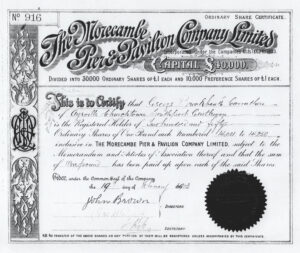 No 916
ORDINARY SHARE CERTIFICATE.
The Morecambe
Pier & Pavilion Company Limited
CAPITAL £40,000.
DIVIDED INTO 30000 ORDINARY SHARES OF £1 EACH AND 10,000 PREFERENCE SHARES OF £1 EACH.
This is to Certify that George
is the Registered Holder of Two hundred and fifty
Ordinary Shares of One Pound each Numbered to
inclusive in THE MORECAMBE PIER & PAVILION COMPANY LIMITED, subject to the
Memorandum and Articles of Association thereof and that the sum
of has been paid up upon each of the said Shares
GIVEN under the Common Seal of the Company
the 19 day of
John Brown
DIRECTORS
SECRETARY
N.B. NO TRANSFER OF THE ABOVE SHARES OR ANY PORTION OF THEM WILL BE REGISTERED UNLESS ACCOMPANIED BY THIS CERTIFICATE.